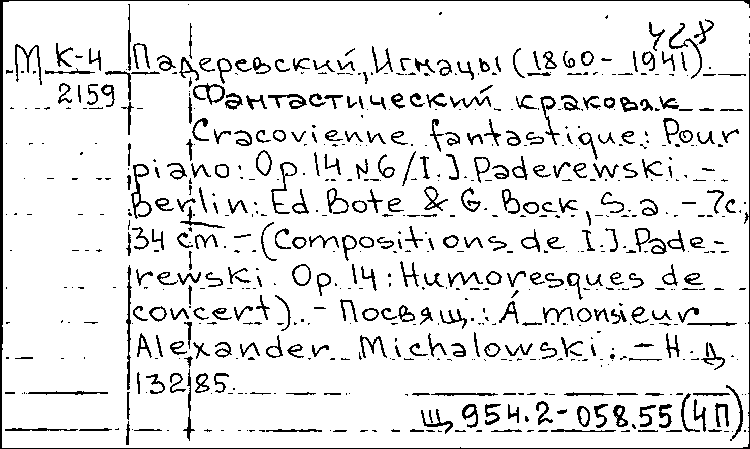 428
М К-4 Падеревский, Игнацы (1860 - 1941).
2159 Фантастический краковяк
Cracovienne fantastique: Pour
piano: Op. 14 N 6 / I. J. Paderewski. -
Berlin: Ed. Bote & G. Bock, S. a. - 7с.;
34 cm. - (Compositions de I. J. Pade-
rewski. Op. 14: Humoresques de
concert). - Посвящ.: Á monsieur
Alexander Michalowski. - Н. д.
13285.
Щ 954.2-058.55 (4П)